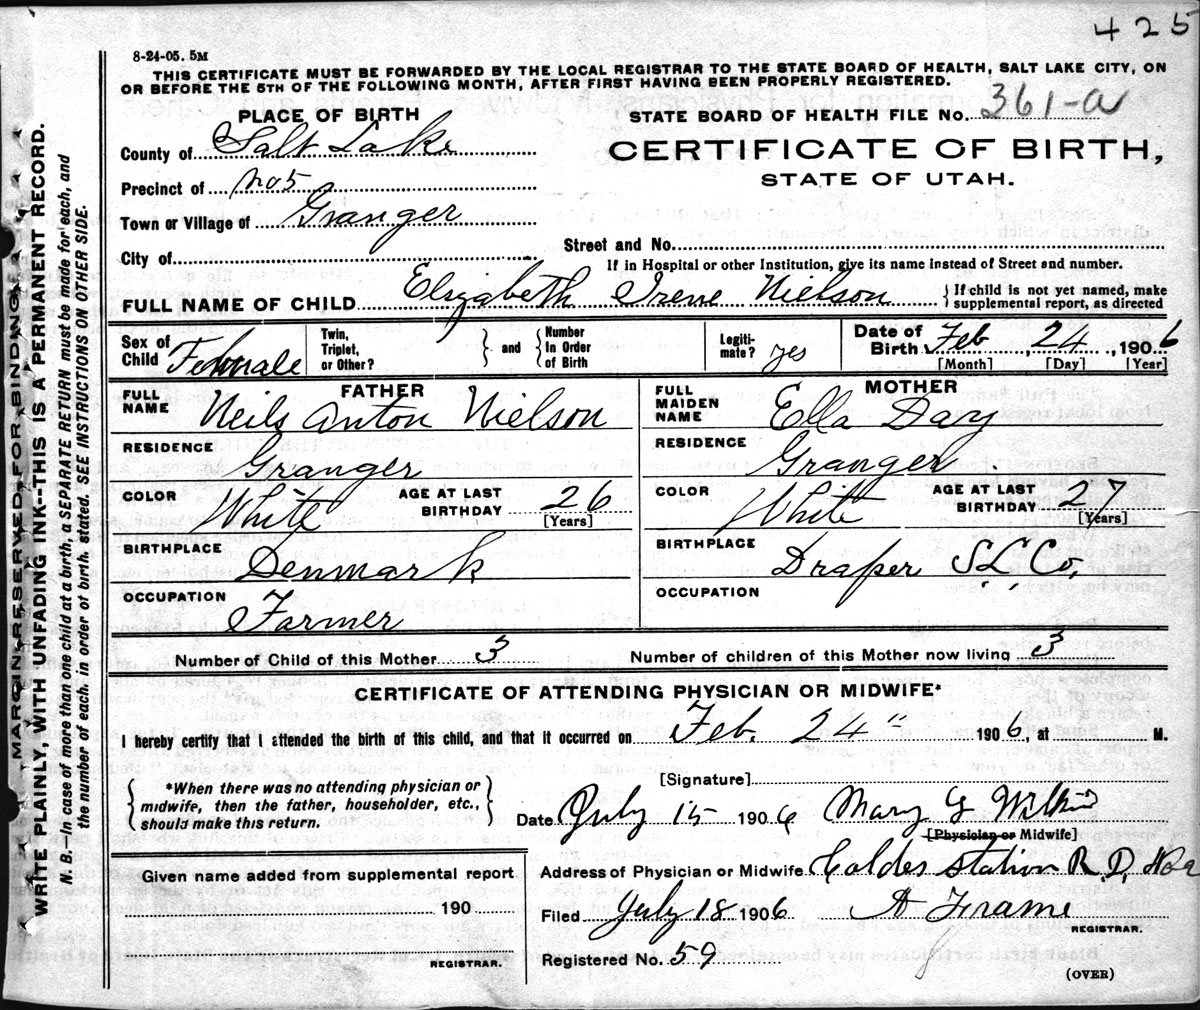 425
8-24-05. 5M
THIS CERTIFICATE MUST BE FORWARDED BY THE LOCAL REGISTRAR TO THE STATE BOARD OF HEALTH, SALT LAKE CITY, ON
OR BEFORE THE 5TH OF THE FOLLOWING MONTH, AFTER FIRST HAVING BEEN PROPERLY REGISTERED.
MARGIN RESERVED FOR BINDING
WRITE PLAINLY, WITH UNFADING INK--THIS IS A PERMANENT RECORD.
N. B.—In case of more than one child at a birth, a SEPARATE RETURN must be made for each, and
the number of each, in order of birth, stated. SEE INSTRUCTIONS ON OTHER SIDE.
PLACE OF BIRTH
County of Salt Lake
Precinct of No 5
Town or Village of Granger
City of
STATE BOARD OF HEALTH FILE No. 361-a
CERTIFICATE OF BIRTH,
STATE OF UTAH.
Street and No.
If in Hospital or other Institution, give its name instead of Street and number.
FULL NAME OF CHILD Elizabeth Irene Nielson
If child is not yet named, make
supplemental report, as directed
Sex of Child Female
Twin, Triplet, or Other?
and
Number In Order of Birth
Legiti-mate? yes
Date of Birth Feb, 24, 1906
[Month] [Day] [Year]
FATHER
FULL NAME Neils Anton Nielson
RESIDENCE Granger
COLOR White
AGE AT LAST BIRTHDAY 26
[Years]
BIRTHPLACE Denmark
OCCUPATION Farmer
MOTHER
FULL MAIDEN NAME Ella Day
RESIDENCE Granger
COLOR White
AGE AT LAST BIRTHDAY 27
[Years]
BIRTHPLACE Draper S. L. Co.
OCCUPATION
Number of Child of this Mother 3
Number of children of this Mother now living 3
CERTIFICATE OF ATTENDING PHYSICIAN OR MIDWIFE*
I hereby certify that I attended the birth of this child, and that it occurred on Feb. 24" 1906, at M.
*When there was no attending physician or
midwife, then the father, householder, etc.,
should make this return.
[Signature]
Date July 15 1906 Mary G
[Physician or Midwife]
Given name added from supplemental report
190
REGISTRAR.
Address of Physician or Midwife Station R. D.
Filed July 18 1906 A Frame
REGISTRAR.
Registered No. 59
(OVER)